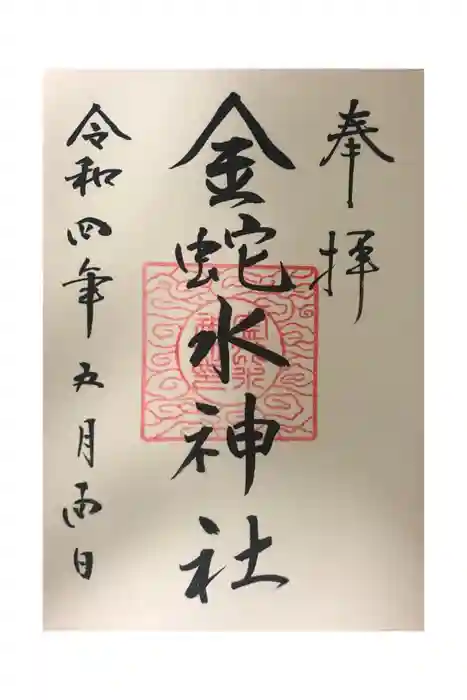 奉拝
金蛇水神社
令和四年五月日